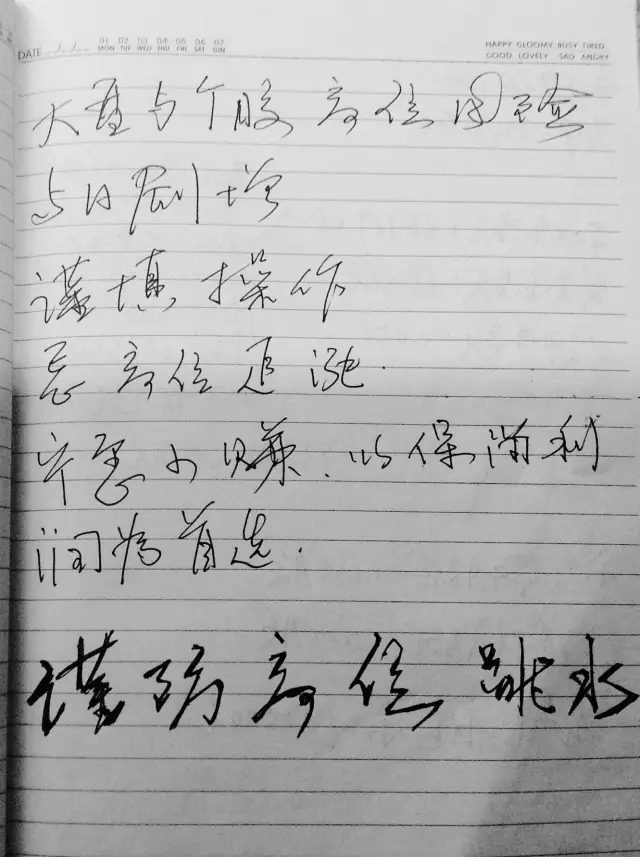 DATE
01 02 03 04 05 06 07
MON TUE WED THU FRI SAT SUN
HAPPY GLOOMY BUSY TIRED
GOOD LOVELY SAD ANGRY
大盘与个股高位风险
与日剧增
谨慎操作
忌高位追涨.
宁愿少赚.以保尚利
润为首选.
谨防高位跳水